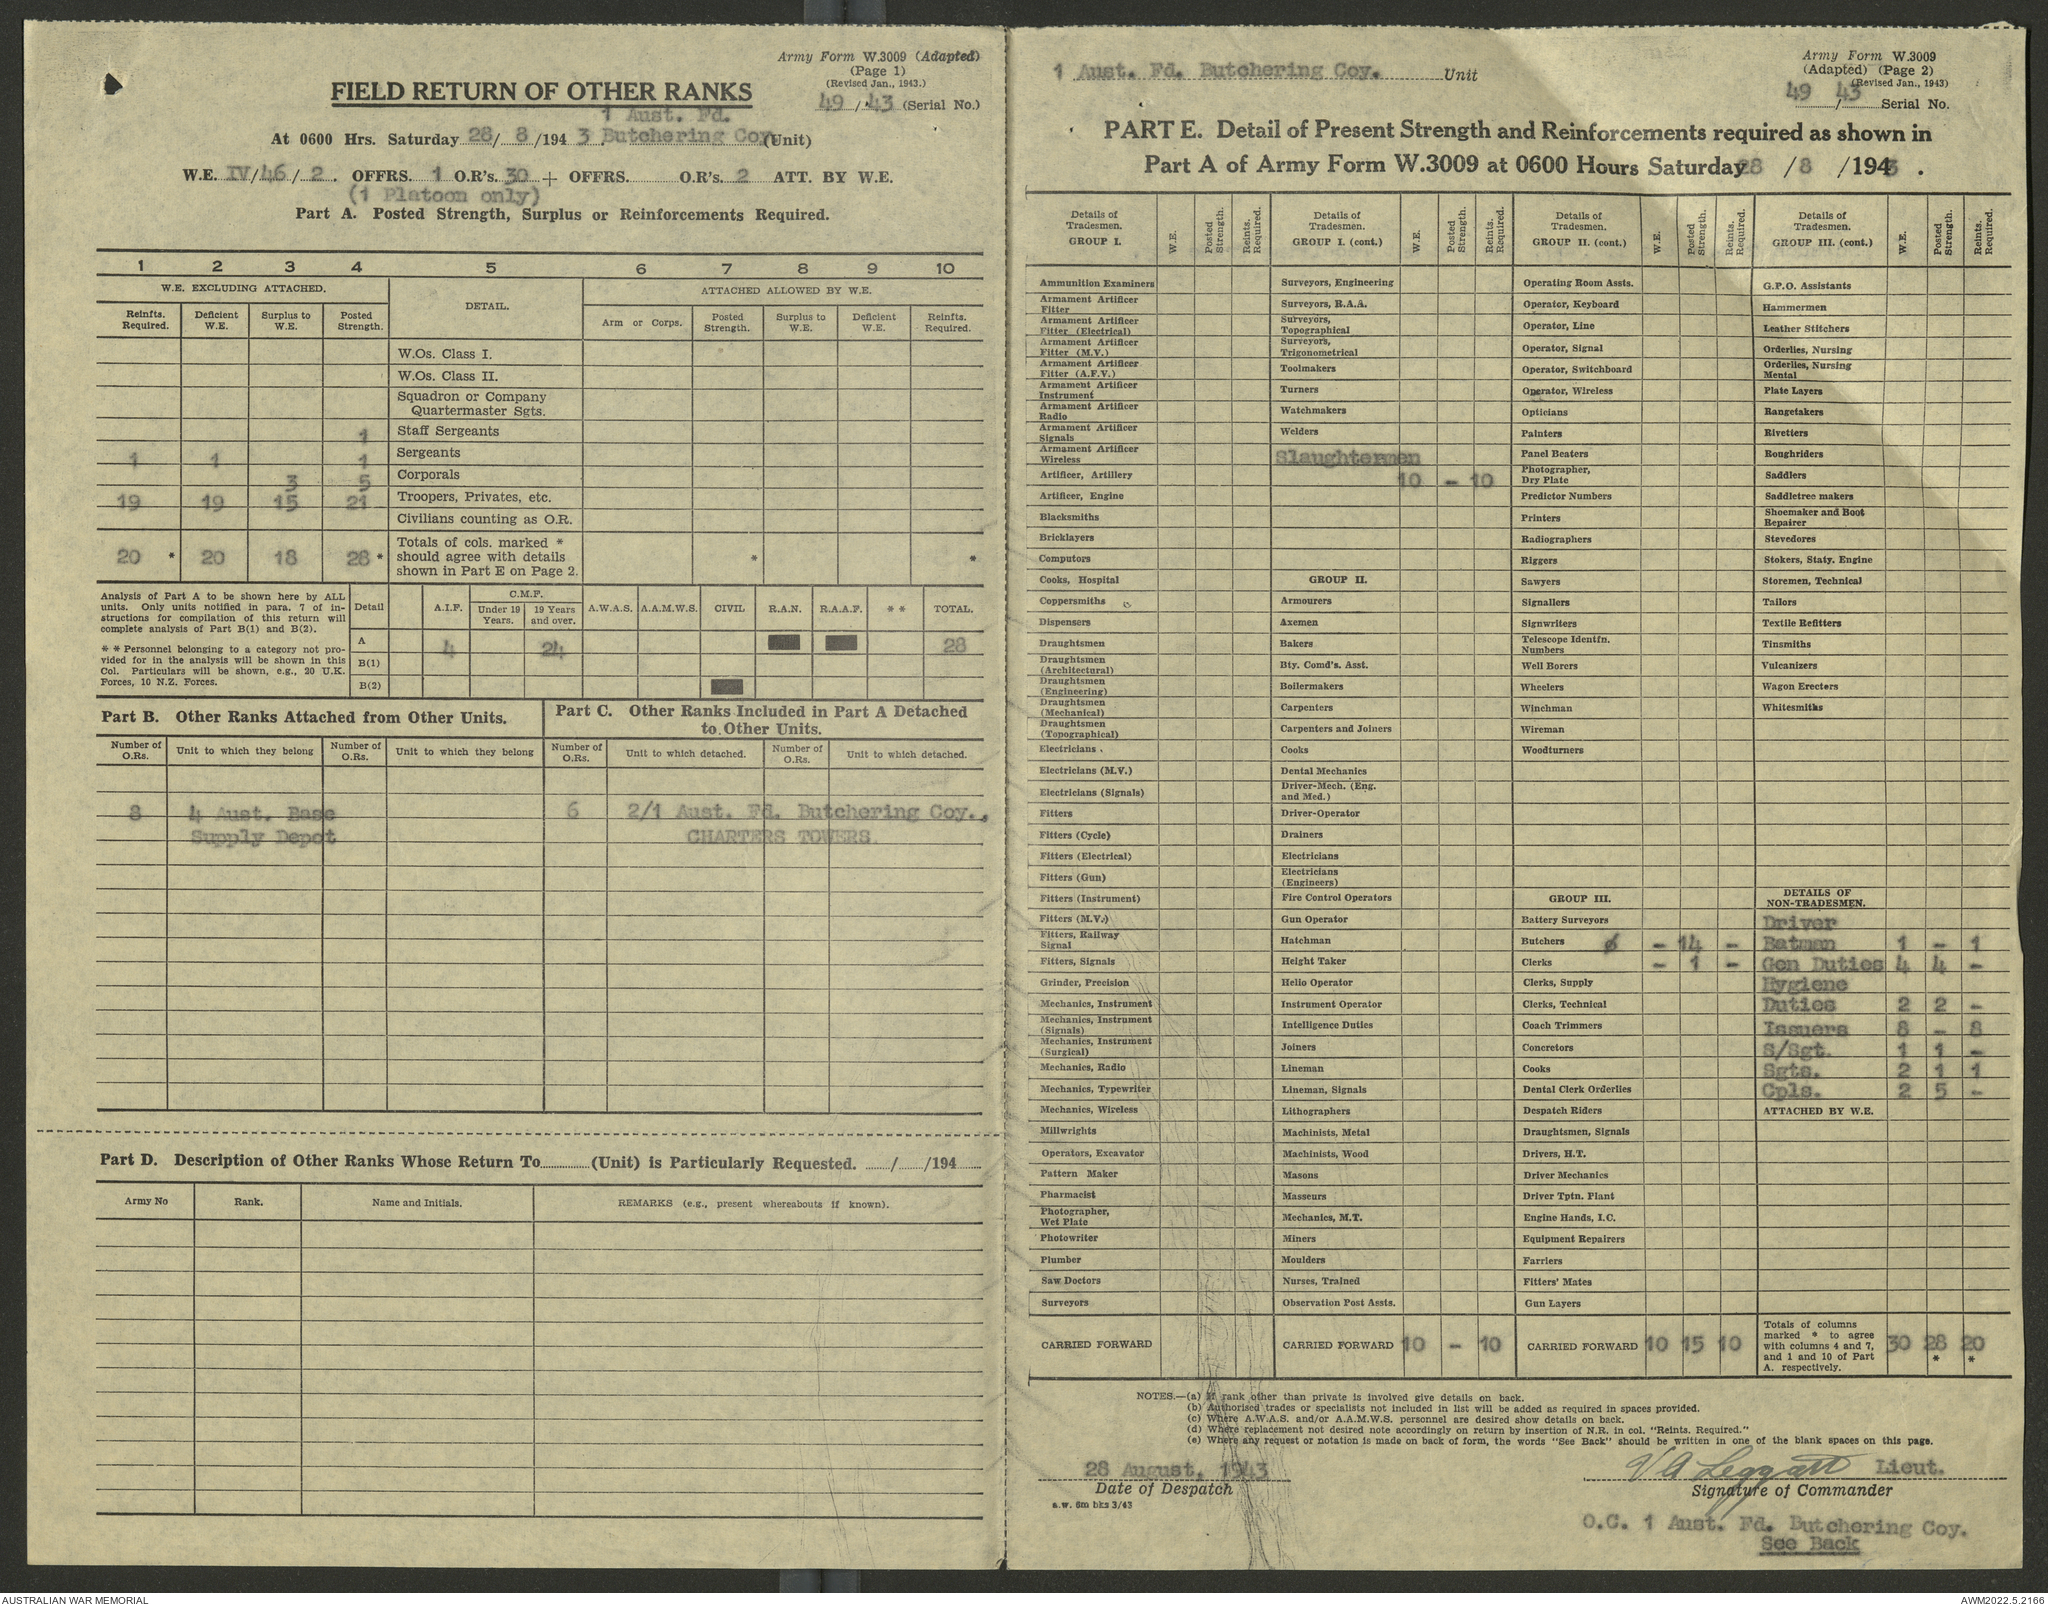 Army Form W.3009 (Adapted)
(Page 1)
(Revised Jan., 1943.)
FIELD RETURN OF OTHER RANKS
49 / 43 (Serial No.)
1 Aust. Fd.
At 0600 Hrs. Saturday 28/ 8 /194 3 Butchering Coy. (Unit)
W.E. IV/46/ 2 . OFFRS. 1 O.R's. 30 + OFFRS. O.R's. 2 ATT. BY W.E.
(1 Platoon only)
Part A. Posted Strength, Surplus or Reinforcements Required.
1 2 3 4 5 6 7 8 9 10
W.E. EXCLUDING ATTACHED. DETAIL. ATTACHED ALLOWED BY W.E.
Reinfts. Required. Deficient W.E. Surplus to W.E. Posted Strength. Arm or Corps. Posted Strength. Surplus to W.E. Deficient W.E. Reinfts. Required.
W.Os. Class I.
W.Os. Class II.
Squadron or Company
Quartermaster Sgts.
1 Staff Sergeants
1 1 1 Sergeants
3 5 Corporals
19 19 15 21 Troopers, Privates, etc.
Civilians counting as O.R.
20 * 20 18 28 * Totals of cols. marked * * *
should agree with details
shown in Part E on Page 2.
Analysis of Part A to be shown here by ALL
units. Only units notified in para. 7 of in-
structions for compilation of this return will
complete analysis of Part B(1) and B(2).
* * Personnel belonging to a category not pro-
vided for in the analysis will be shown in this
Col. Particulars will be shown, e.g., 20 U.K.
Forces, 10 N.Z. Forces.
Detail A.I.F. C.M.F. A.W.A.S. A.A.M.W.S. CIVIL R.A.N. R.A.A.F. * * TOTAL.
Under 19 Years. 19 Years and over.
A 4 24 28
B(1)
B(2)
Part B. Other Ranks Attached from Other Units.
Number of O.Rs. Unit to which they belong Number of O.Rs. Unit to which they belong
8 4 Aust. Base
Supply Depot
Part C. Other Ranks Included in Part A Detached
to Other Units.
Number of O.Rs. Unit to which detached. Number of O.Rs. Unit to which detached.
6 2/1 Aust. Fd. Butchering Coy.,
CHARTERS TOWERS.
Part D. Description of Other Ranks Whose Return To (Unit) is Particularly Requested. / /194
Army No Rank. Name and Initials. REMARKS (e.g., present whereabouts if known).
1 Aust. Fd. Butchering Coy. Unit
Army Form W.3009
(Adapted) (Page 2)
(Revised Jan., 1943)
49 / 43 Serial No.
PART E. Detail of Present Strength and Reinforcements required as shown in
Part A of Army Form W.3009 at 0600 Hours Saturday 28 / 8 /1943 .
Details of Tradesmen. GROUP I. W.E. Posted Strength. Reints. Required.
Ammunition Examiners
Armament Artificer Fitter
Armament Artificer Fitter (Electrical)
Armament Artificer Fitter (M.V.)
Armament Artificer Fitter (A.F.V.)
Armament Artificer Instrument
Armament Artificer Radio
Armament Artificer Signals
Armament Artificer Wireless
Artificer, Artillery
Artificer, Engine
Blacksmiths
Bricklayers
Computors
Cooks, Hospital
Coppersmiths
Dispensers
Draughtsmen
Draughtsmen (Architectural)
Draughtsmen (Engineering)
Draughtsmen (Mechanical)
Draughtsmen (Topographical)
Electricians
Electricians (M.V.)
Electricians (Signals)
Fitters
Fitters (Cycle)
Fitters (Electrical)
Fitters (Gun)
Fitters (Instrument)
Fitters (M.V.)
Fitters, Railway Signal
Fitters, Signals
Grinder, Precision
Mechanics, Instrument
Mechanics, Instrument (Signals)
Mechanics, Instrument (Surgical)
Mechanics, Radio
Mechanics, Typewriter
Mechanics, Wireless
Millwrights
Operators, Excavator
Pattern Maker
Pharmacist
Photographer, Wet Plate
Photowriter
Plumber
Saw Doctors
Surveyors
CARRIED FORWARD
Details of Tradesmen. GROUP I. (cont.) W.E. Posted Strength. Reints. Required.
Surveyors, Engineering
Surveyors, R.A.A.
Surveyors, Topographical
Surveyors, Trigonometrical
Toolmakers
Turners
Watchmakers
Welders
Slaughtermen
10 - 10
GROUP II.
Armourers
Axemen
Bakers
Bty. Comd's. Asst.
Boilermakers
Carpenters
Carpenters and Joiners
Cooks
Dental Mechanics
Driver-Mech. (Eng. and Med.)
Driver-Operator
Drainers
Electricians
Electricians (Engineers)
Fire Control Operators
Gun Operator
Hatchman
Height Taker
Helio Operator
Instrument Operator
Intelligence Duties
Joiners
Lineman
Lineman, Signals
Lithographers
Machinists, Metal
Machinists, Wood
Masons
Masseurs
Mechanics, M.T.
Miners
Moulders
Nurses, Trained
Observation Post Assts.
CARRIED FORWARD 10 - 10
Details of Tradesmen. GROUP II. (cont.) W.E. Posted Strength. Reints. Required.
Operating Room Assts.
Operator, Keyboard
Operator, Line
Operator, Signal
Operator, Switchboard
Operator, Wireless
Opticians
Painters
Panel Beaters
Photographer, Dry Plate
Predictor Numbers
Printers
Radiographers
Riggers
Sawyers
Signallers
Signwriters
Telescope Identfn. Numbers
Well Borers
Wheelers
Winchman
Wireman
Woodturners
GROUP III.
Battery Surveyors
Butchers ø - 14 -
Clerks - 1 -
Clerks, Supply
Clerks, Technical
Coach Trimmers
Concretors
Cooks
Dental Clerk Orderlies
Despatch Riders
Draughtsmen, Signals
Drivers, H.T.
Driver Mechanics
Driver Tptn. Plant
Engine Hands, I.C.
Equipment Repairers
Farriers
Fitters' Mates
Gun Layers
CARRIED FORWARD 10 15 10
Details of Tradesmen. GROUP III. (cont.) W.E. Posted Strength. Reints. Required.
G.P.O. Assistants
Hammermen
Leather Stitchers
Orderlies, Nursing
Orderlies, Nursing Mental
Plate Layers
Rangetakers
Rivetters
Roughriders
Saddlers
Saddletree makers
Shoemaker and Boot Repairer
Stevedores
Stokers, Staty. Engine
Storemen, Technical
Tailors
Textile Refitters
Tinsmiths
Vulcanizers
Wagon Erectors
Whitesmiths
DETAILS OF NON-TRADESMEN.
Driver
Batman 1 - 1
Gen Duties 4 4 -
Hygiene
Duties 2 2 -
Issuers 8 - 8
S/Sgt. 1 1 -
Sgts. 2 1 1
Cpls. 2 5 -
ATTACHED BY W.E.
Totals of columns
marked * to agree
with columns 4 and 7,
and 1 and 10 of Part
A. respectively.
30 28 * 20 *
NOTES.—(a) If rank other than private is involved give details on back.
(b) Authorised trades or specialists not included in list will be added as required in spaces provided.
(c) Where A.W.A.S. and/or A.A.M.W.S. personnel are desired show details on back.
(d) Where replacement not desired note accordingly on return by insertion of N.R. in col. "Reints. Required."
(e) Where any request or notation is made on back of form, the words "See Back" should be written in one of the blank spaces on this page.
28 August, 1943
Date of Despatch
a.w. 6m bks 3/43
V A Leggatt Lieut.
Signature of Commander
O.C. 1 Aust. Fd. Butchering Coy.
See Back
AUSTRALIAN WAR MEMORIAL
AWM2022.5.2166